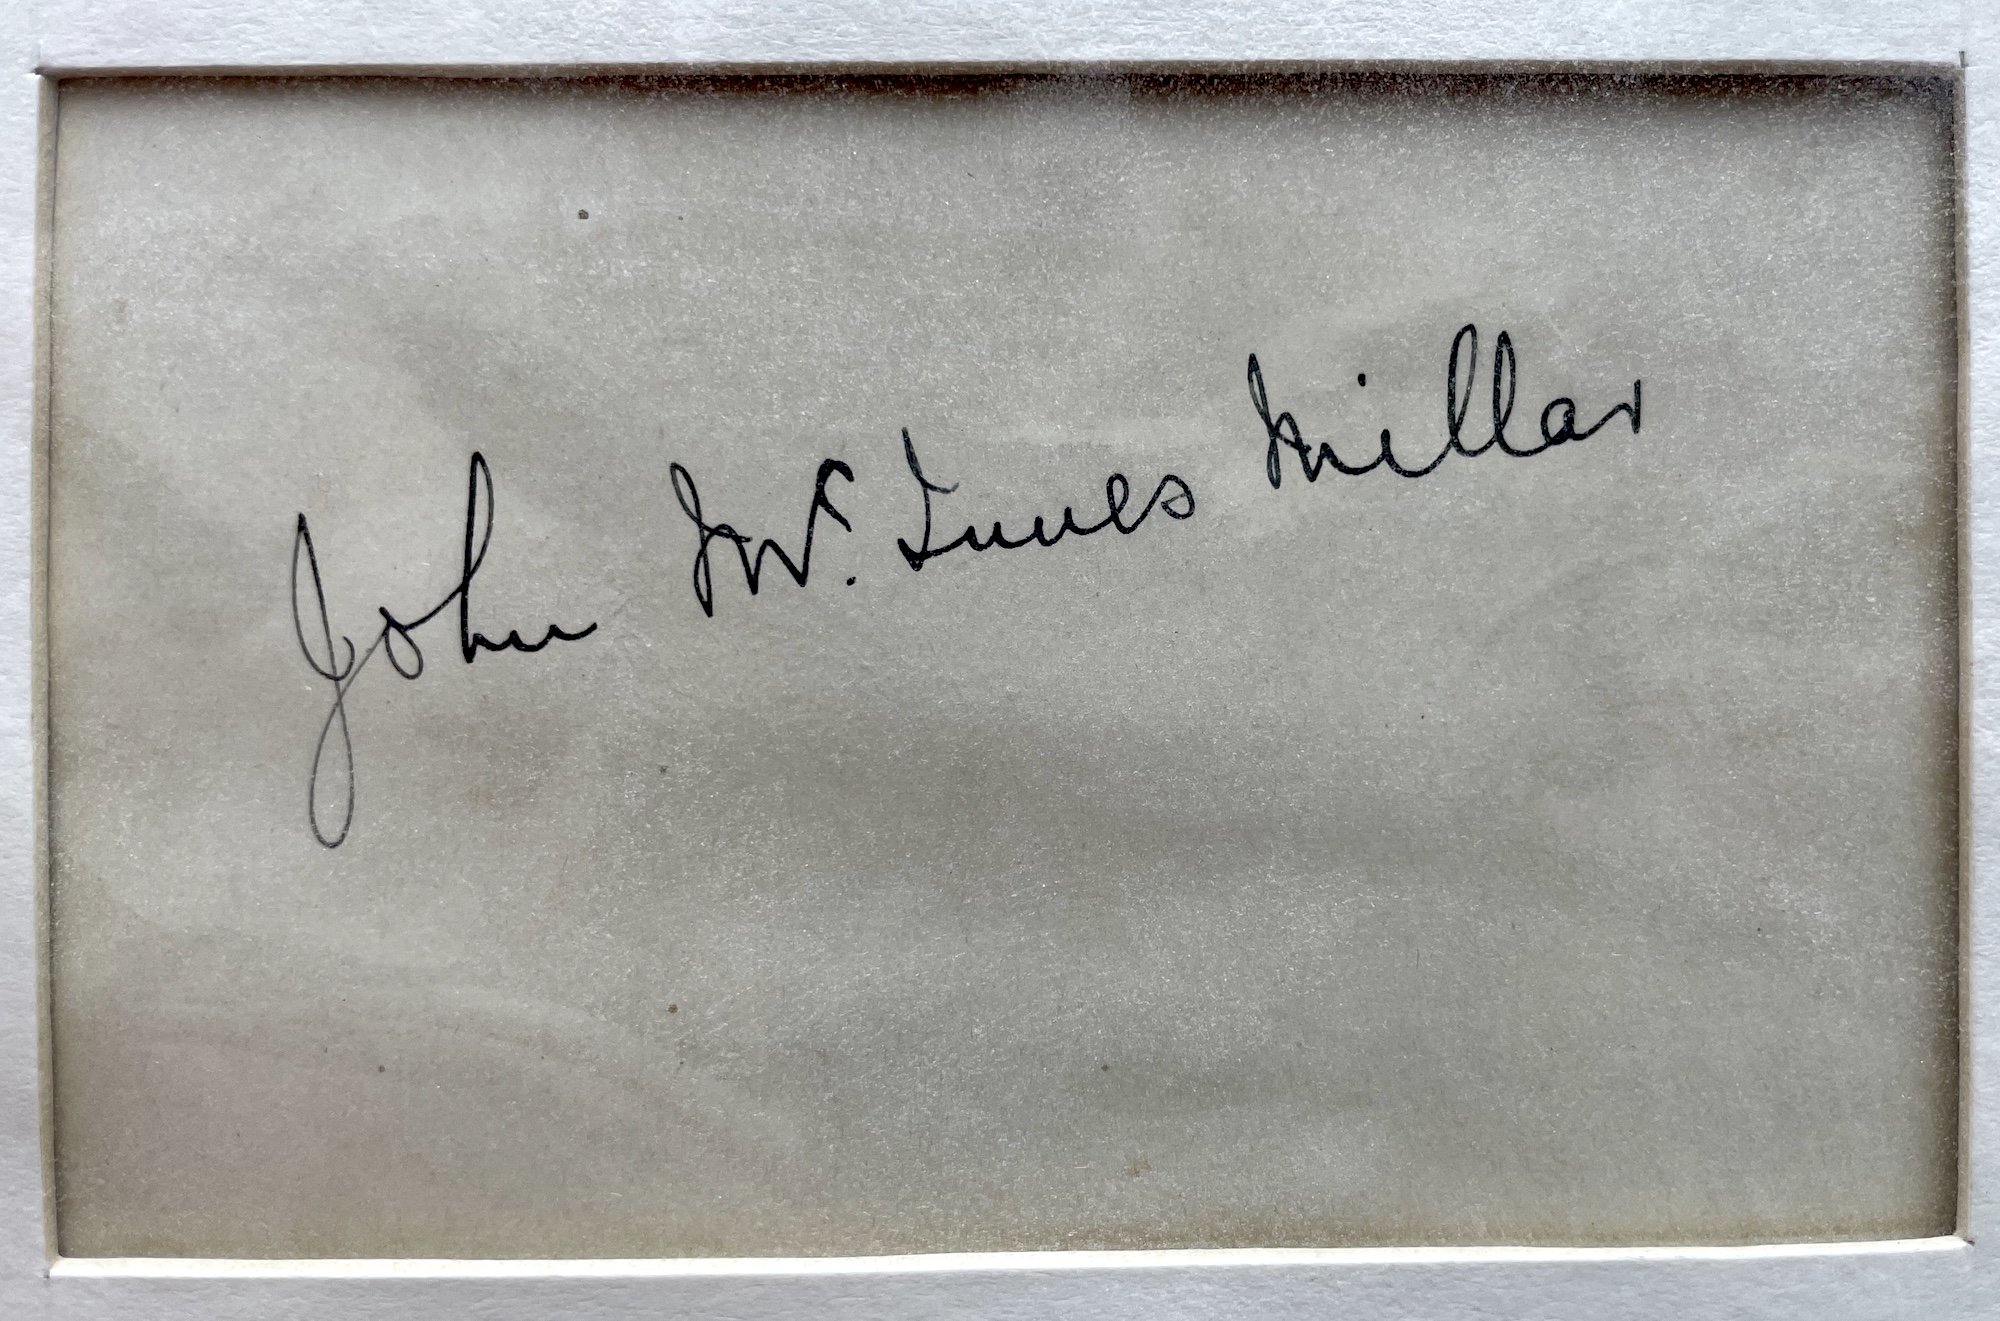 John Mc. Innes Millar